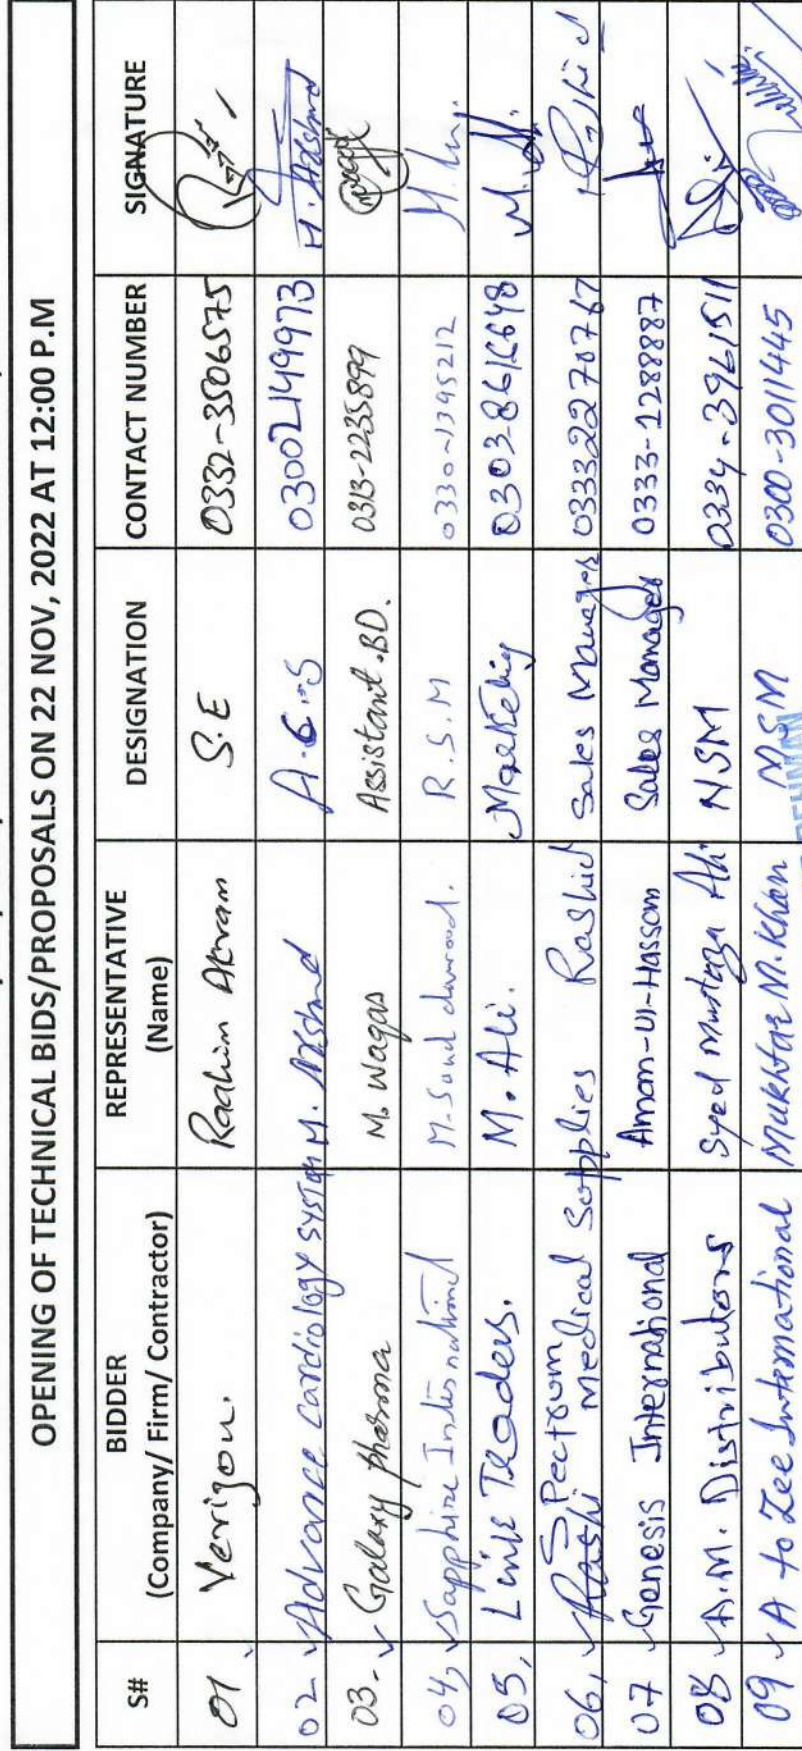 OPENING OF TECHNICAL BIDS/PROPOSALS ON 22 NOV, 2022 AT 12:00 P.M
S# BIDDER (Company/ Firm/ Contractor) REPRESENTATIVE (Name) DESIGNATION CONTACT NUMBER SIGNATURE
01 Verizon. Raahim Akram S.E 0332-3506575
02 Advance cardiology system M. Arshad A.C.S 03002149973 M. Arshad
03- Galaxy pharma M. Waqas Assistant .BD. 0313-2235899
04, Sapphire International M. Saud dawood. R.S.M 0330-1395212
05, Link Traders. M. Ali. Marketing 0303-8616648 M. Ali.
06, Spectrum Medical Supplies Rashid Sales Manager 03332270767 Rashid
07 Genesis International Aman-Ul-Hassan Sales Manager 0333-1288887
08 A.M. Distributors Syed Murtaza Ali NSM 0334-3961511
09 A to Zee International Mukhtar M. Khan MSM 0300-3011445